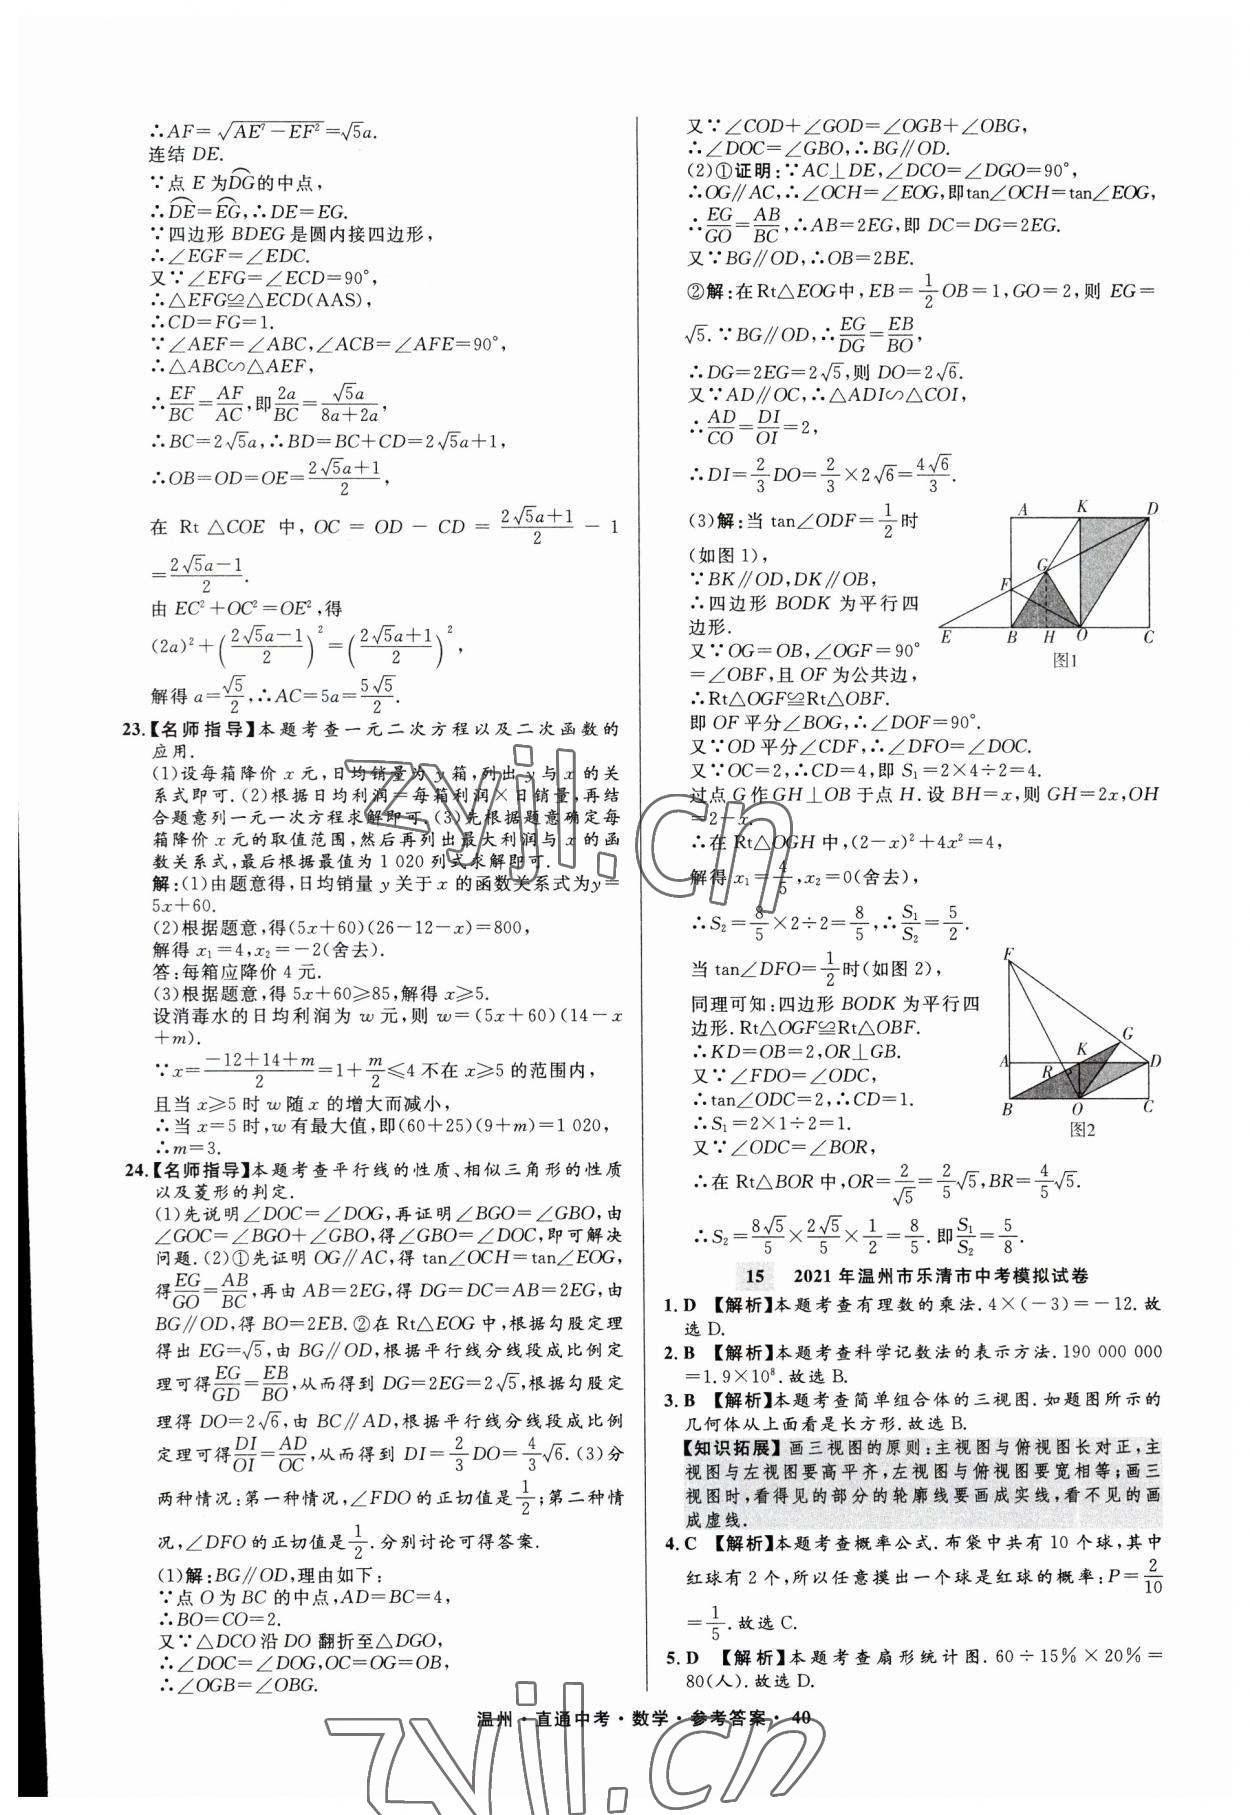 ∴AF=√(AE⁷-EF²)=√5a.
连结 DE.
∵点 E 为DG的中点,
∴DE=EG,∴DE=EG.
∵四边形 BDEG 是圆内接四边形,
∴∠EGF=∠EDC.
又∵∠EFG=∠ECD=90°,
∴△EFG≌△ECD(AAS),
∴CD=FG=1.
∵∠AEF=∠ABC,∠ACB=∠AFE=90°,
∴△ABC∽△AEF,
∴EF/BC=AF/AC,即2a/BC=√5a/(8a+2a),
∴BC=2√5a,∴BD=BC+CD=2√5a+1,
∴OB=OD=OE=(2√5a+1)/2,
在 Rt △COE 中, OC = OD - CD = (2√5a+1)/2 - 1
=(2√5a-1)/2.
由 EC²+OC²=OE²,得
(2a)²+((2√5a-1)/2)²=((2√5a+1)/2)²,
解得 a=√5/2,∴AC=5a=5√5/2.
23.【名师指导】本题考查一元二次方程以及二次函数的
应用.
(1)设每箱降价 x 元,日均销量为 y 箱,列出 y 与 x 的关
系式即可.(2)根据日均利润=每箱利润×日销量,再结
合题意列一元一次方程求解即可.(3)先根据题意确定每
箱降价 x 元的取值范围,然后再列出最大利润与 x 的函
数关系式,最后根据最值为 1 020 列式求解即可.
解:(1)由题意得,日均销量 y 关于 x 的函数关系式为y=
5x+60.
(2)根据题意,得(5x+60)(26-12-x)=800,
解得 x₁=4,x₂=-2(舍去).
答:每箱应降价 4 元.
(3)根据题意,得 5x+60⩾85,解得 x⩾5.
设消毒水的日均利润为 w 元,则 w=(5x+60)(14-x
+m).
∵x=(-12+14+m)/2=1+m/2⩽4 不在 x⩾5 的范围内,
且当 x⩾5 时 w 随 x 的增大而减小,
∴当 x=5 时,w 有最大值,即(60+25)(9+m)=1 020,
∴m=3.
24.【名师指导】本题考查平行线的性质、相似三角形的性质
以及菱形的判定.
(1)先说明∠DOC=∠DOG,再证明∠BGO=∠GBO,由
∠GOC=∠BGO+∠GBO,得∠GBO=∠DOC,即可解决
问题.(2)①先证明 OG∥AC,得 tan∠OCH=tan∠EOG,
得EG/GO=AB/BC,再由 AB=EG,得 DG=DC=AB=2EG,由
BG∥OD,得 BO=2EB.②在 Rt△EOG 中,根据勾股定理
得出 EG=√5,由 BG∥OD,根据平行线分线段成比例定
理可得EG/GD=EB/BO,从而得到 DG=2EG=2√5,根据勾股定
理得 DO=2√6,由 BC∥AD,根据平行线分线段成比例
定理可得DI/OI=AD/OC,从而得到 DI=2/3DO=4/3√6.(3)分
两种情况:第一种情况,∠FDO 的正切值是1/2;第二种情
况,∠DFO 的正切值是1/2.分别讨论可得答案.
(1)解:BG∥OD,理由如下:
∵点 O 为 BC 的中点,AD=BC=4,
∴BO=CO=2.
又∵△DCO 沿 DO 翻折至△DGO,
∴∠DOC=∠DOG,OC=OG=OB,
∴∠OGB=∠OBG.
又∵∠COD+∠GOD=∠OGB+∠OBG,
∴∠DOC=∠GBO,∴BG∥OD.
(2)①证明:∵AC⊥DE,∠DCO=∠DGO=90°,
∴OG∥AC,∴∠OCH=∠EOG,即tan∠OCH=tan∠EOG,
∴EG/GO=AB/BC,∴AB=2EG,即 DC=DG=2EG.
又∵BG∥OD,∴OB=2BE.
②解:在Rt△EOG中, EB=1/2OB=1,GO=2,则 EG=
√5.∵BG∥OD,∴EG/DG=EB/BO,
∴DG=2EG=2√5,则 DO=2√6.
又∵AD∥OC,∴△ADI∽△COI,
∴AD/CO=DI/OI=2,
∴DI=2/3DO=2/3×2√6=4√6/3.
(3)解:当 tan∠ODF=1/2时
(如图 1),
∵BK∥OD,DK∥OB,
∴四边形 BODK 为平行四
边形.
又∵OG=OB,∠OGF=90°
=∠OBF,且 OF 为公共边,
∴Rt△OGF≌Rt△OBF.
即 OF 平分∠BOG,∴∠DOF=90°.
又∵OD 平分∠CDF,∴∠DFO=∠DOC.
又∵OC=2,∴CD=4,即 S₁=2×4÷2=4.
过点 G 作 GH⊥OB 于点 H.设 BH=x,则 GH=2x,OH
=2-x.
∴在 Rt△OGH 中,(2-x)²+4x²=4,
解得 x₁=4/5,x₂=0(舍去),
∴S₂=8/5×2÷2=8/5,∴S₁/S₂=5/2.
当 tan∠DFO=1/2时(如图 2),
同理可知:四边形 BODK 为平行四
边形.Rt△OGF≌Rt△OBF.
∴KD=OB=2,OR⊥GB.
又∵∠FDO=∠ODC,
∴tan∠ODC=2,∴CD=1.
∴S₁=2×1÷2=1.
又∵∠ODC=∠BOR,
∴在 Rt△BOR 中,OR=2/√5=2/5√5,BR=4/5√5.
∴S₂=8√5/5×2√5/5×1/2=8/5.即S₁/S₂=5/8.
A K D
G
F
E B H O C
图1
F
G
A K D
R
B O C
图2
15 2021 年温州市乐清市中考模拟试卷
1. D 【解析】本题考查有理数的乘法. 4×(-3)=-12. 故
选 D.
2. B 【解析】本题考查科学记数法的表示方法. 190 000 000
=1.9×10⁸.故选 B.
3. B 【解析】本题考查简单组合体的三视图. 如题图所示的
几何体从上面看是长方形.故选 B.
【知识拓展】 画三视图的原则:主视图与俯视图长对正,主
视图与左视图要高平齐,左视图与俯视图要宽相等;画三
视图时,看得见的部分的轮廓线要画成实线,看不见的画
成虚线.
4. C 【解析】本题考查概率公式. 布袋中共有 10 个球,其中
红球有 2 个,所以任意摸出一个球是红球的概率:P=2/10
=1/5.故选 C.
5. D 【解析】本题考查扇形统计图. 60÷15%×20%=
80(人).故选 D.
温州·直通中考·数学·参考答案· 40
zyjl.cn
zyjl.cn